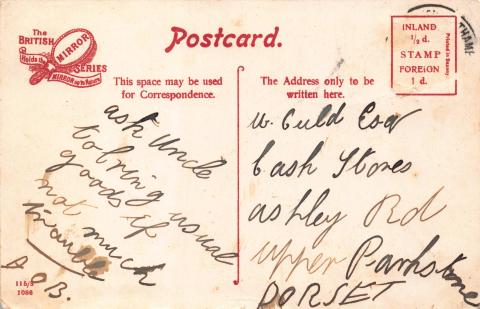 The
BRITISH
MIRROR
Holds the
SERIES
MIRROR up to Nature
Postcard.
INLAND
½ d.
STAMP
FOREIGN
1 d.
Printed in Saxony
THAM
This space may be used
for Correspondence.
The Address only to be
written here.
ask Uncle
to bring usual
goods if
not much
trouble
W. Guld Esq
Cash Stores
Ashley Rd
Upper Parkstone
DORSET
115/3
1086